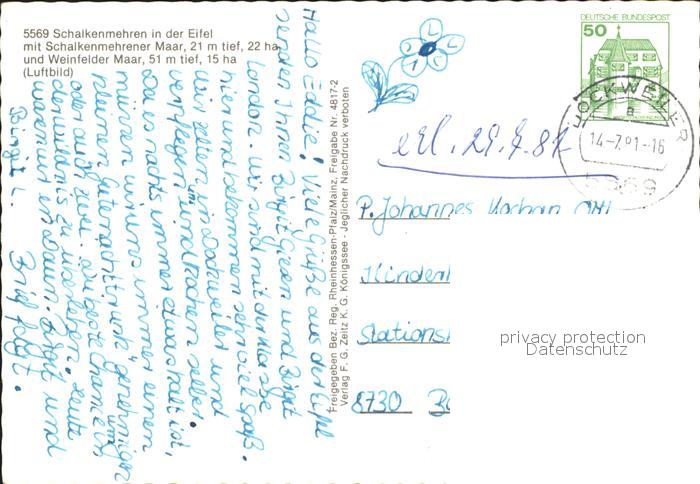 5569 Schalkenmehren in der Eifel
mit Schalkenmehrener Maar, 21 m tief, 22 ha
und Weinfelder Maar, 51 m tief, 15 ha
(Luftbild)
Hallo Eddie! Viele Grüße aus der Eifel
senden Ihnen Birgit Green und Birgit
London. Wir sind mit der Klasse
hier und bekommen sehr viel Spaß.
Wir zelten in Dockweiler und
verpflegen um und machen alles.
Da es nachts immer etwas kalt ist,
müssen wir uns immer einen
kleinen genehmigen
oder auch zwei. um
den zu überleben.
warum es Birgit und
Birgit L. Brief folgt.
Freigegeben Bez. Reg. Rheinhessen-Pfalz/Mainz, Freigabe Nr. 4817-2
Verlag F. G. Zeitz K. G. Königssee - Jeglicher Nachdruck verboten
DEUTSCHE BUNDESPOST
50
DOCKWEILER
a
14-7.81-16
5569
erl. 29.7.81
P. Johannes
Hinden
Stations
8730 B
privacy protection
Datenschutz